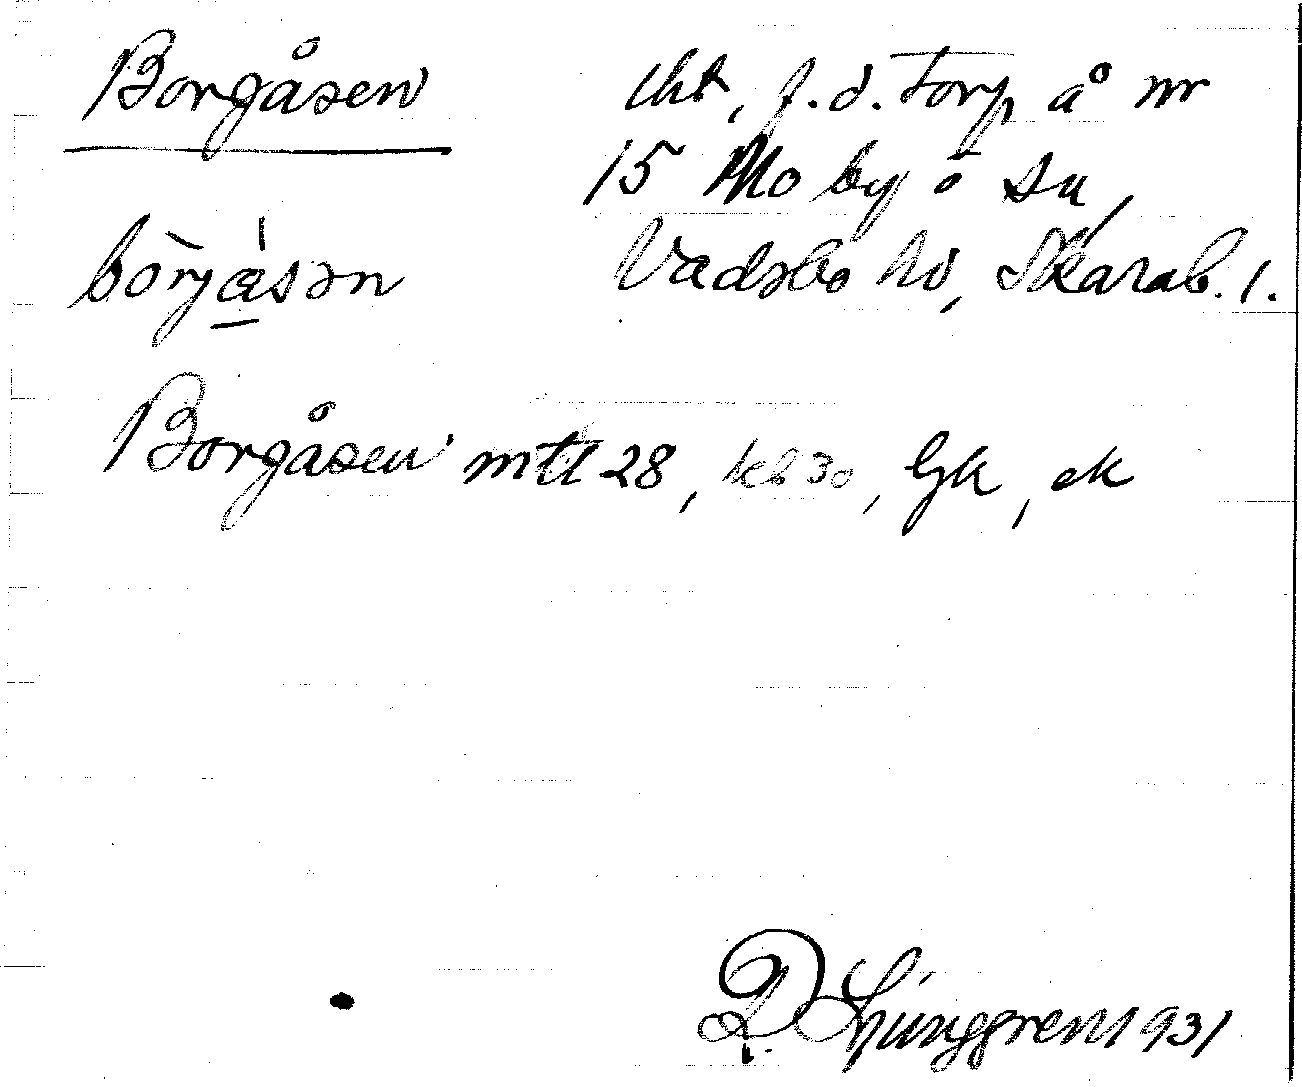 Borgåsen
lht, f.d. torp å nr
15 Mo by o su,
Vadsbo hd, Skarab. l.
bòrjá̱sən
Borgåsen mtl 28, kb 30, Gk, ek
R. Ljunggren 1931